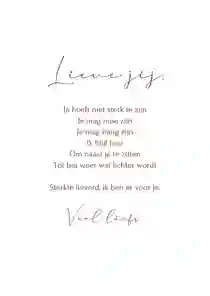 Lieve jij,
Je hoeft niet sterk te zijn
Je mag moe zijn
Je mag bang zijn
Ik blijf hier
Om naast je te zitten
Tot het weer wat lichter wordt
Sterkte lieverd, ik ben er voor je.
Veel liefs